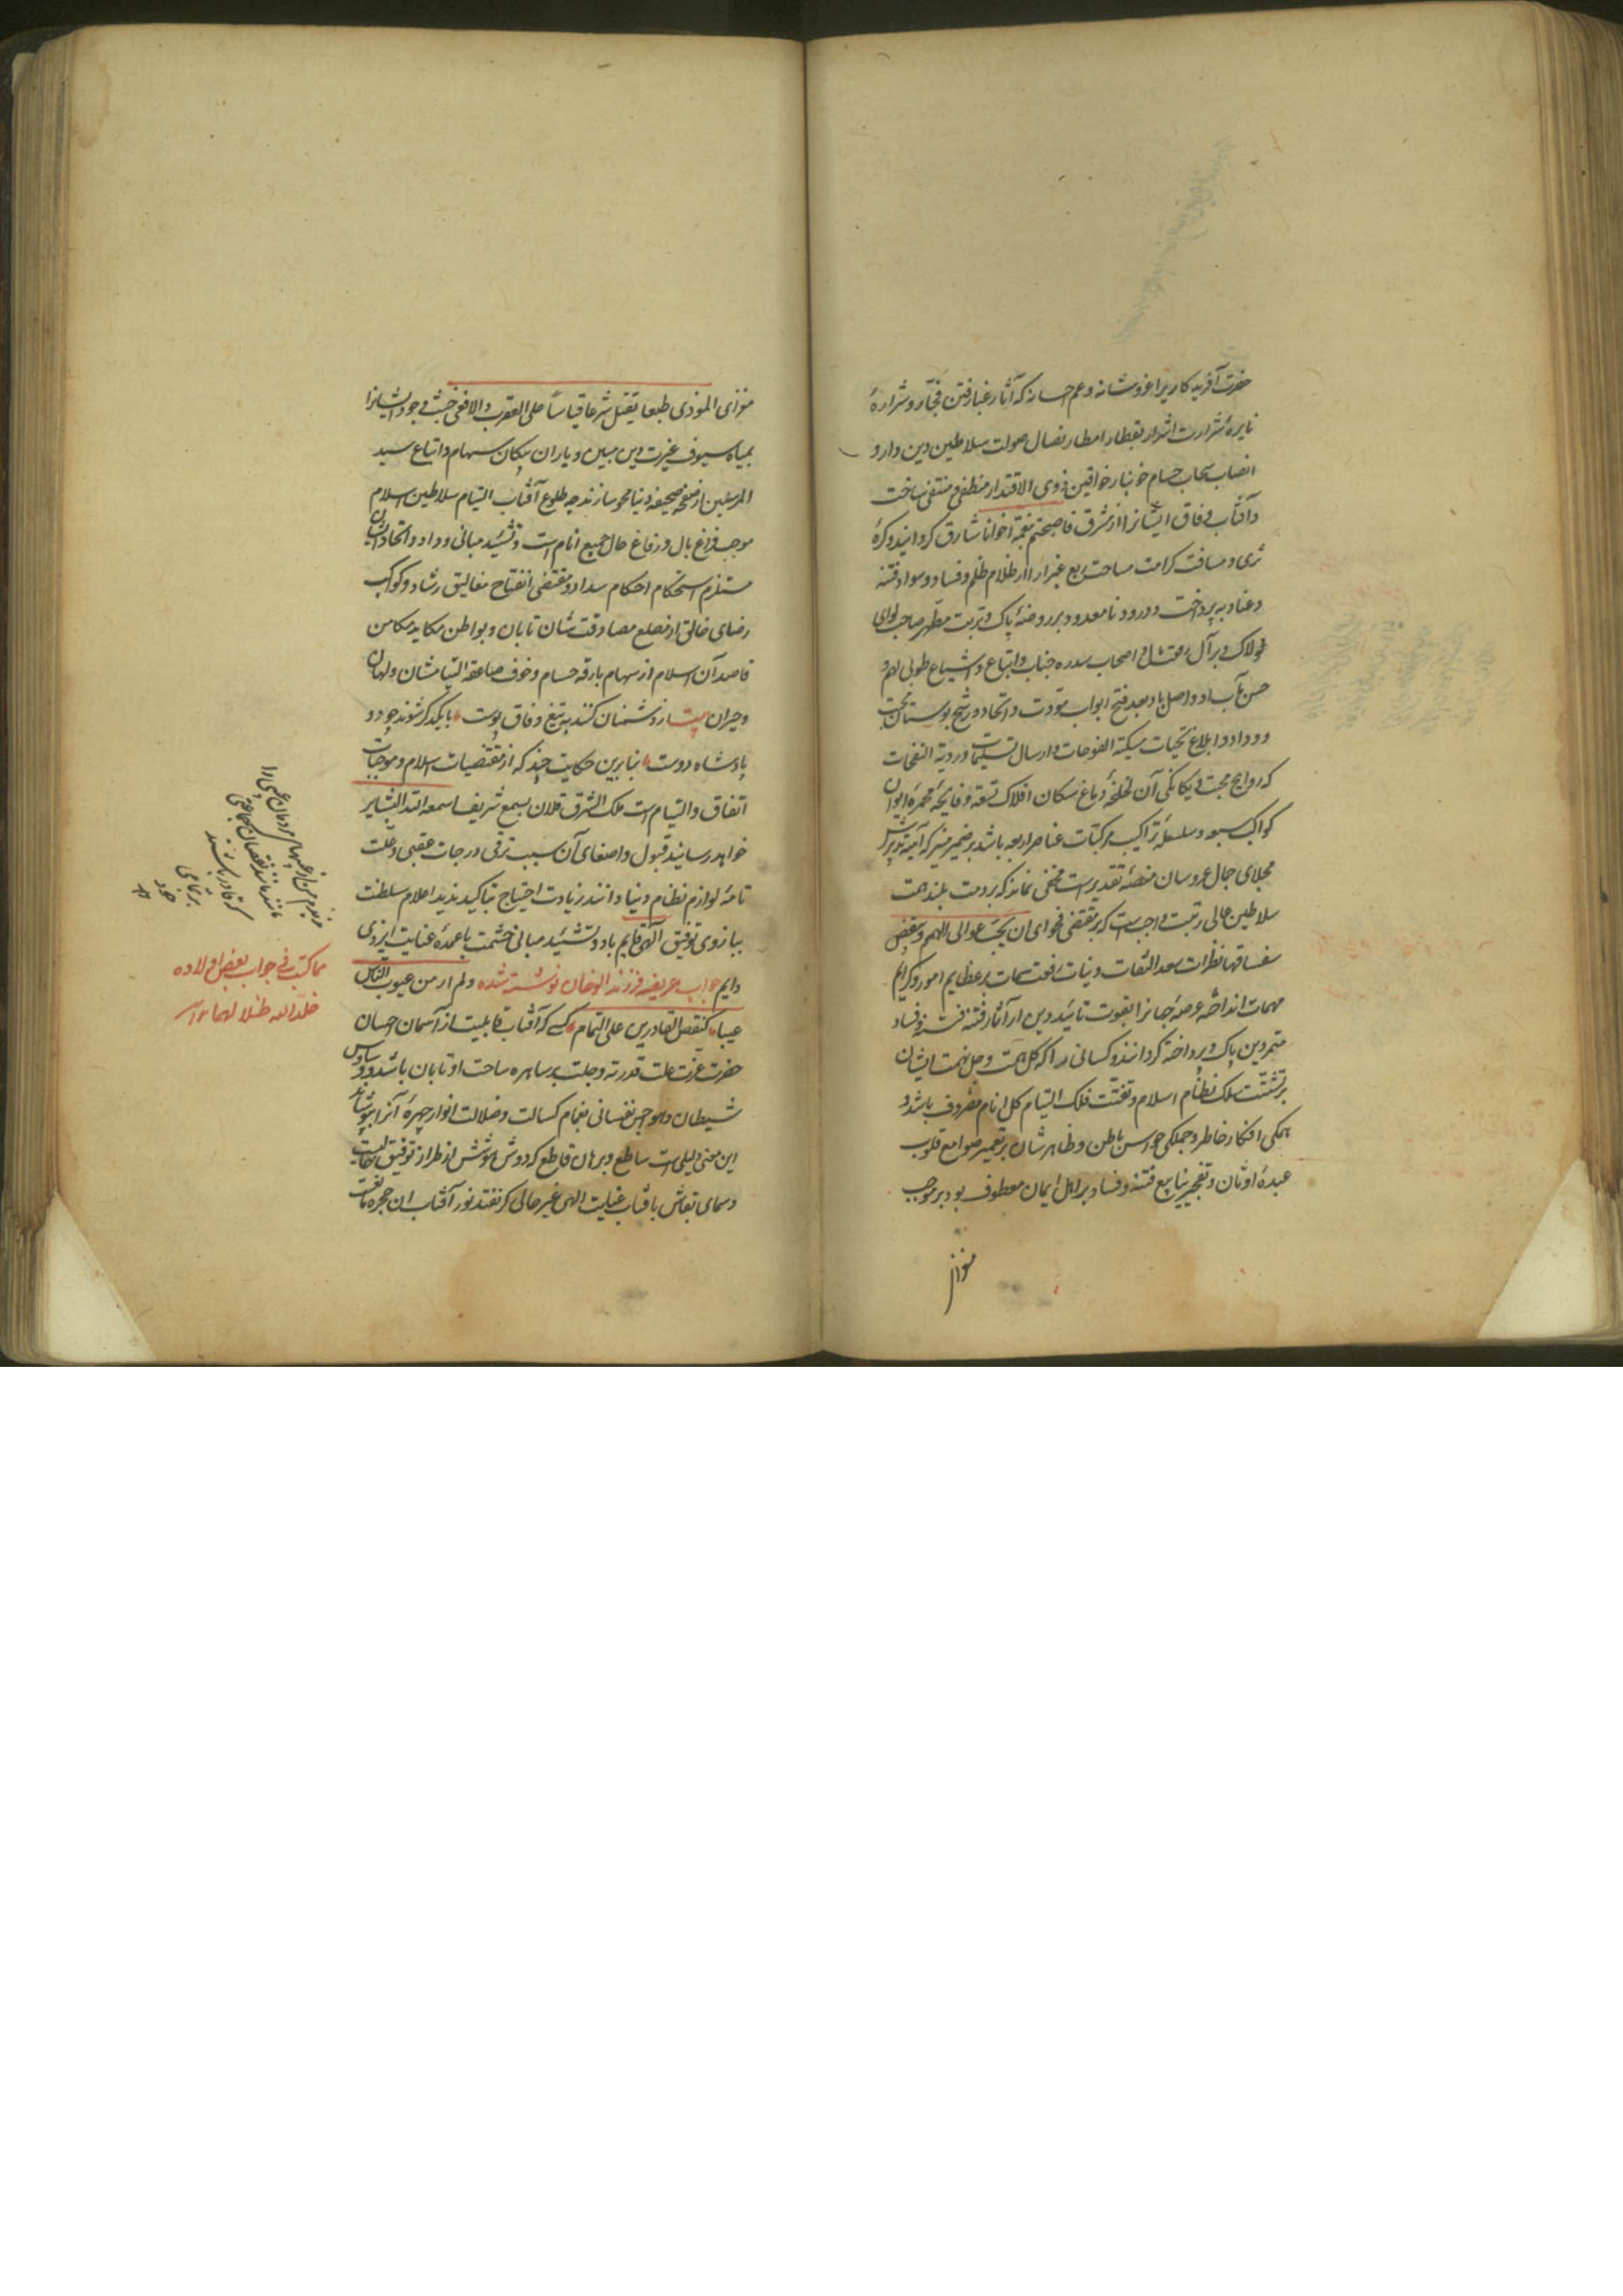 حضرت آفریدکار یرا عز و شانه و عم احسانه که آثار غبار فتن فجّار و شرارهٔ
نایرهٔ شرارت اشرار بقطار امطار نصال صولت سلاطین دین دار و
انصاب سحاب حسام خونبار خواقین ذوی الاقتدار منطفی و منتفی ساخت
و آفتاب وفاق ایشانرا از مشرق فاصبحتم بنعمته اخوانا شارق کردانید و کرهٔ
ثری و مسافت کرامت مساحت ربع غبرا را از ظلام ظلم و فساد و سواد فتنه
و عناد بپرداخت و درود نامعدود بر روضهٔ پاک و تربت مطهر صاحب لوای
لولاک و بر آل و اصحاب سدره جناب و اتباع و اشیاع طوبی لهم و
حسن مآب باد و اصل باد بعد فتح ابواب مودّت و اتحاد و رشح بوستان محبت
و وداد و ابلاغ تحیات مسکیة الفوحات و ارسال تسلیمات وردیة النفحات
که روایح محبت و یکانکی آن لخلخهٔ دماغ سکان افلاک تسعه و فایحهٔ مجمرهٔ ایوان
کواکب سبعه و سلسلهٔ تراکیب مرکبات عناصر اربعه باشد بر ضمیر منیر که آینهٔ تدبیرش
مجلای جمال عروسان منصهٔ تقدیر است مخفی نماند که بر ذمت بلند همت
سلاطین عالی رتبت واجبست که بر مقتضی فحوای ان یحب عوالی الهمم و یبغض
سفسافها نظرات سعد التفات و نیات رفعت سمات بر عظایم امور و کرایم
مهمات انداخته عرصهٔ جهانرا بقوت تائید دین از آثار فتنه و فساد
متمردین پاک و پرداخته کردانند و کسانی را که کل همت و جل نهمت ایشان
بر تشتت سلک نظام اسلام و تفتت فلک التیام کل انام مصروف باشد و
همکی افکار خاطر و جملکی حواس باطن و ظاهر شان بر تعمیر صوامع قلوب
عبدهٔ اوثان و تفجیر ینابیع فتنه و فساد بر اهل ایمان معطوف بود بر موجب
موذی الموذی طبعا یقتل شرعا قیاسا علی العقرب و الافعی خبث وجود ایشانرا
بمیاه سیوف غیرت دین مبین و باران پیکان سهام و اتباع سید
المرسلین از صفحهٔ صحیفه دنیا محو سازند چه طلوع آفتاب التیام سلاطین اسلام
موجب فراغ بال و رفاغ حال جمیع انام است و تشئید مبانی وداد و اتحاد ایشان
مستلزم استحکام احکام سداد و مقتضی انفتاح مغالیق رشاد و کوکب
رضای خالق از مطلع مصادقت شان تابان و بواطن مکاید مکامن
قاصدان اسلام از سهام بارقه حسام و خوف صاعقه التیام شان ولهان
و حیران بیت از دشمنان کنند به تیغ وفاق پوست بایکدکر شوند چو دو
پادشاه دوست بنابرین حکایت چند که از مقتضیات اسلام و موجبات
اتفاق و التیام است ملک الشرق فلان بسمع شریف اسمعه الله البشایر
خواهد رسانید قبول و اصغای آن سبب ترقی درجات عقبی و علت
تامهٔ لوازم نظام دنیا دانند زیادت احتیاج بتاکید ندید اعلام سلطنت
ببازوی توفیق الهی قایم باد و تشئید مبانی حشمت باعمدهٔ عنایت ایزدی
دایم جواب عریضه فرزند الوخان نوشته شده و لم ار من عیوب الناس
عیبا کنقص القادرین علی التمام کسی که آفتاب قابلیت از آسمان احسان
حضرت عزت علت قدرته و جلت بر ساهره ساحت او تابان باشد و وساوس
شیطان و هواجس نفسانی بغمام کسالت و ضلالت انوار چهرهٔ آنرا بپوشاند
این معنی دلیلی است ساطع و برهان قاطع که دوش هوشش از طراز توفیق عالیت
و سمای بقاش بآفتاب عنایت الهی غیر حالی کرنفتد نور آفتاب ان حجره یافت
مما کتب فی جواب بعض اولاده
خلد الله ظلالهما
ندیدم من از عیبهای مردمان عیبی را
مانند نقصان کسانی
که قادر باشند
بر تمامی
موذ